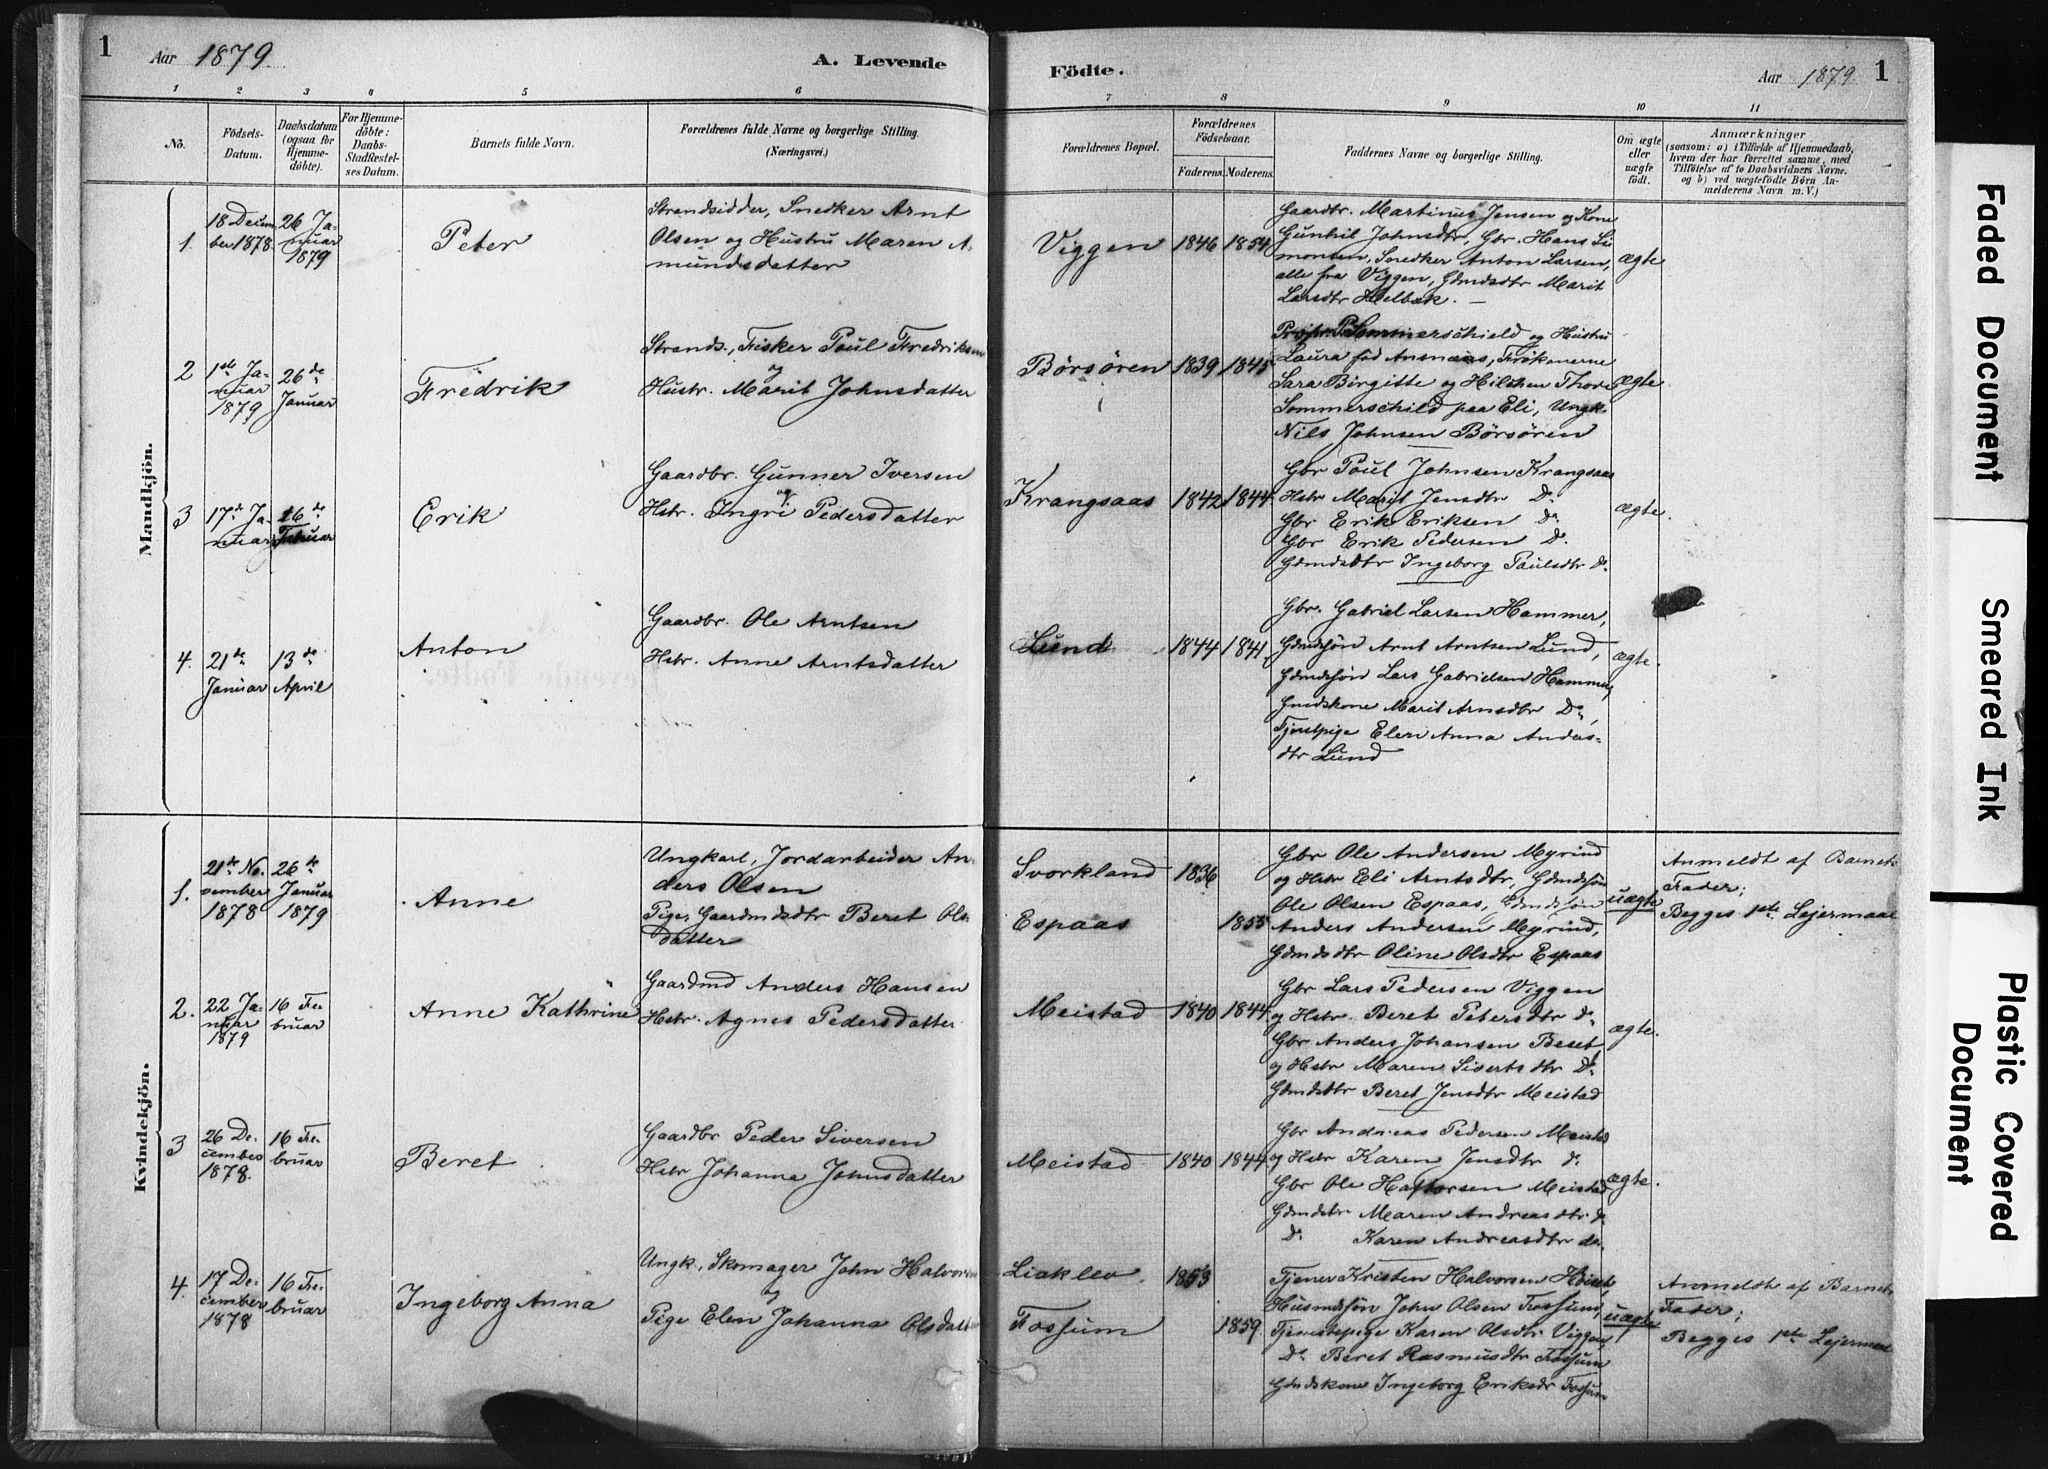 1
Aar 1879.
A. Levende
Födte.
Aar 1879.
1
1
2
3
4
5
6
7
8
9
10
11
No.
Födsels-
Datum.
Daabsdatum
(ogsaa for
Hjemme-
döbte).
For Hjemme-
döbte:
Daabs-
Stadfæstel-
ses Datum.
Barnets fulde Navn.
Forældrenes fulde Navne og borgerlige Stilling.
(Næringsvei.)
Forældrenes Bopæl.
Forældrenes
Födselsaar.
Faderens.
Moderens.
Faddernes Navne og borgerlige Stilling.
Om ægte
eller
uægte
födt.
Anmærkninger
(saasom: a) i Tilfælde af Hjemmedaab,
hvem der har forrettet samme, med
Tilföielse af to Daabsvidners Navne.
og b) ved uægtefödte Börn An-
melderens Navn m. V.)
Mandkjön.
1.
18 Decem-
ber 1878.
26 Ja-
nuar
1879
Peter
Strandsidder, Snedker Arnt
Olsen og Hustru Maren A-
mundsdatter
Viggen
1846
1854
Gaardbr. Martinus Jensen og Kone
Gunhil Johnsdtr, Gbr. Hans Si
monsen, Snedker Anton Larsen,
alle fra Viggen, Gdmdsdtr Marit
Larsdtr Helbæk. —
ægte
2
1ste Ja-
nuar
1879
26 de
Januar
Fredrik
Strands., Fisker Poul Fredriksen
og
Hustr. Marit Johnsdatter
Börsören
1839
1845
Sommerschield og Hustru
Laura fød Ansmaas, Frøknerne
Sara Birgitte og Thore
Sommerschild paa Eli, Ungk.
Nils Johnsen Börsören
ægte
3
17de Ja-
nuar
16 de
Februar
Erik
Gaardbr. Gunner Iversen
og
Hstr. Ingri Pedersdatter
Krangsaas
1842
1844
Gbr Poul Johnsen Krangsaas
Hstr Marit Jensdtr Do
Gbr Erik Eriksen Do
Gbr Erik Pedersen Do.
Gdmdsdtr Ingeborg Paulsdtr Do.
ægte.
4.
21 de
Januar
13 de
April
Anton
Gaardbr. Ole Arntsen
Hstr. Anne Arntsdatter
Lund
1844
1841
Gbr. Gabriel Larsen Hammer,
Gdmdsøn Arnt Arntsen Lund,
Gdmdsøn Lars Gabrielsen Hammer,
Gmdskone Marit Arnsdtr Do,
Tjenstpige Elen Anna Anders-
dtr Lund
ægte.
Kvindekjön.
1.
21 de No-
vember
1878
26 de
Januar
1879
Anne
Ungkarl, Jordarbeider An-
ders Olsen
Pige, Gaardmdsdtr Beret Ols
datter
Svorkland
Espaas
1836
1855
Gbr Ole Andersen Myrind
og Hstr Eli Arntsdtr, Gdmdsøn
Ole Olsen Espaas, Gdmdsøn
Anders Andersen Myrind,
Gdmdsdtr Oline Olsdtr Espaas
uægte
Anmeldt af Barnets
Fader;
Begges 1ste Lejermaal
2.
22 Ja-
nuar
1879
16 Fe-
bruar
Anne Kathrine
Gaardmd Anders Hansen
Hstr. Agnes Pedersdatter
Meistad
1840
1844
Gbr Lars Pedersen Viggen
og Hstr. Beret Petersdtr Do
Gbr Anders Johansen Beset
og Hstr Maren Sivertsdtr Do
Gdmdsdtr Beret Jensdtr Meistad
ægte.
3
26 De-
cember
1878.
16 Fe-
bruar
Beret
Gaardbr Peder Siversen
Hstr Johanna Johnsdatter
Meistad
1840
1844
Gbr Andreas Pedersen Meistad
og Hstr Karen Jensdtr do
Gbr Ole Haftorsen Meistad
Gdmdsdtr Maren Andreasdtr do
Do Karen Andreasdtr do.
ægte.
4.
17 De-
cember
1878
16 Fe-
bruar
Ingeborg Anna
Ungk., Skomager John Halvorsen
og
Pige Elen Johanna Olsdatter
Liaklev
Fossum
1853
1859
Tjener Kristen Halvorsen
Husmdsøn John Olsen Fossum,
Tjenestepige Karen Olsdtr Viggen,
Do Beret Rasmusdtr Fossum
Gdmdskone Ingeborg Eriksdr Fossum
uægte
Anmeldt af Barnets
Fader;
Begges 1ste Lejermaal
Faded Document
Smeared Ink
Plastic Covered
Document